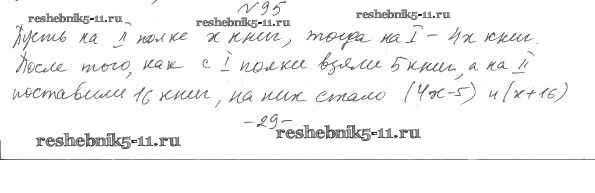 №95
reshebnik5-11.ru reshebnik5-11.ru reshebnik5-11.ru
Пусть на II полке x книг, тогда на I - 4x книг.
После того, как с I полки взяли 5 книг, а на II
поставили 16 книг, на них стало (4x-5) и (x+16)
-29-
reshebnik5-11.ru reshebnik5-11.ru